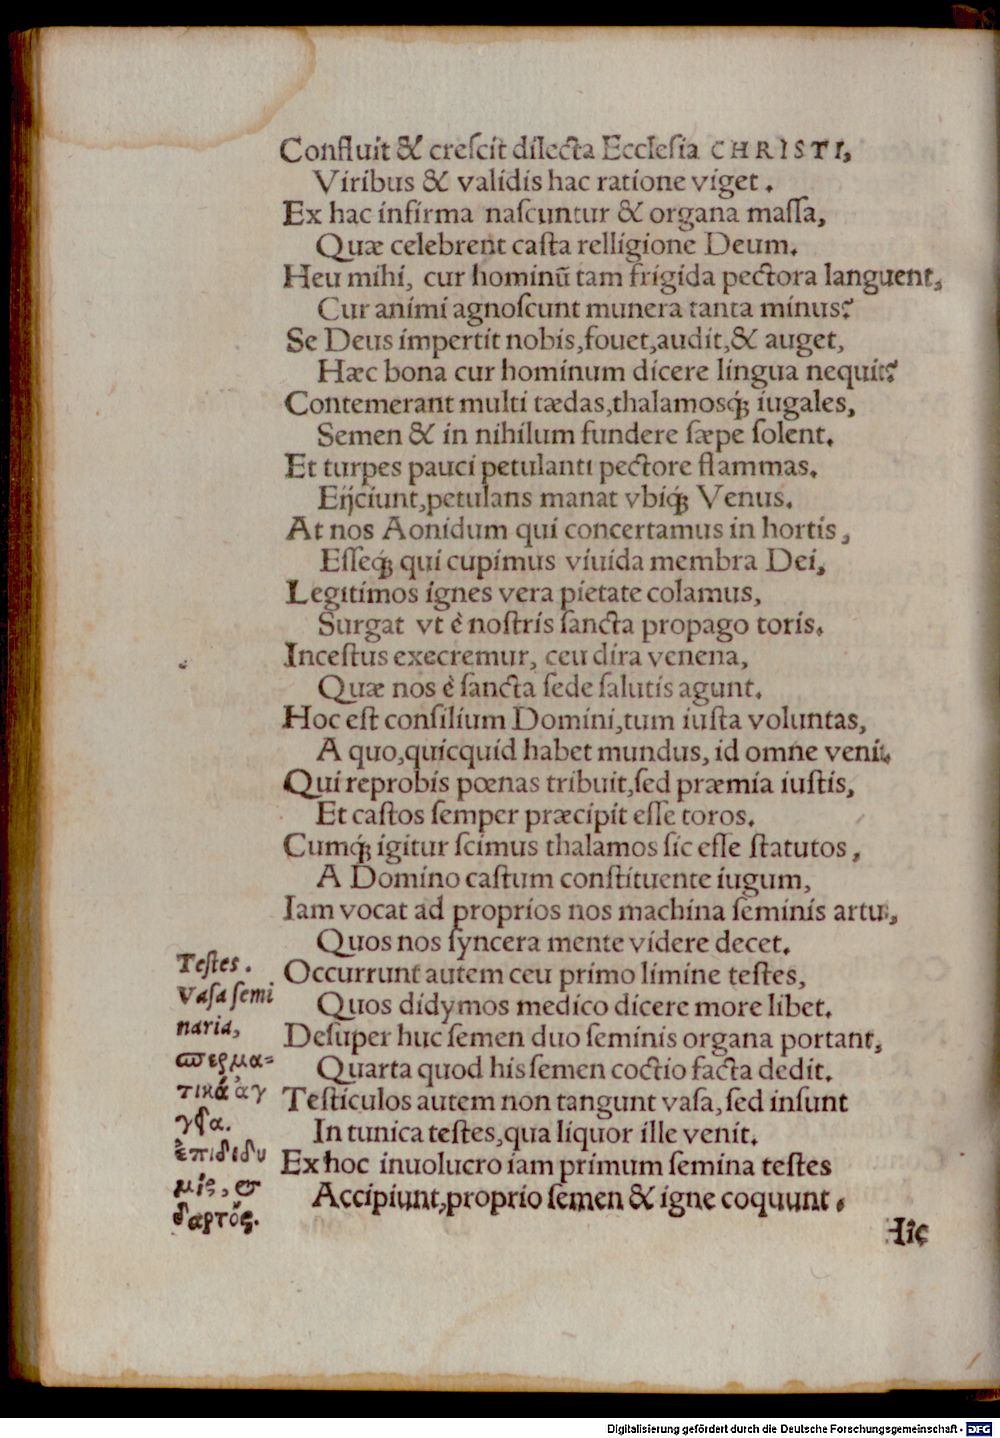 Confluit & creſcit dilecta Eccleſia CHRISTI,
Viribus & validis hac ratione viget.
Ex hac infirma naſcuntur & organa maſſa,
Quæ celebrent caſta relligione Deum.
Heu mihi, cur hominũ tam frigida pectora languent,
Cur animi agnoſcunt munera tanta minus?
Se Deus impertit nobis, fouet, audit, & auget,
Hæc bona cur hominum dicere lingua nequit?
Contemerant multi tædas, thalamosq́; iugales,
Semen & in nihilum fundere ſæpe ſolent.
Et turpes pauci petulanti pectore flammas.
Eijciunt, petulans manat vbiq́; Venus.
At nos Aonidum qui concertamus in hortis,
Eſſeq́; qui cupimus viuida membra Dei,
Legitimos ignes vera pietate colamus,
Surgat vt è noſtris ſancta propago toris.
Inceſtus execremur, ceu dira venena,
Quæ nos è ſancta ſede ſalutis agunt.
Hoc eſt conſilium Domini, tum iuſta voluntas,
A quo, quicquid habet mundus, id omne venit.
Qui reprobis pœnas tribuit, ſed præmia iuſtis,
Et caſtos ſemper præcipit eſſe toros.
Cumq́; igitur ſcimus thalamos ſic eſſe ſtatutos,
A Domino caſtum conſtituente iugum,
Iam vocat ad proprios nos machina ſeminis artus,
Quos nos ſyncera mente videre decet.
Teſtes.
Occurrunt autem ceu primo limine teſtes,
Vaſa ſemi
Quos didymos medico dicere more libet.
naria,
Deſuper huc ſemen duo ſeminis organa portant,
ϖερμα-
Quarta quod his ſemen coctio facta dedit.
τικὰ ἀγ
Teſticulos autem non tangunt vaſa, ſed inſunt
γεῖα.
In tunica teſtes, qua liquor ille venit.
ἐπιδιδυ
Ex hoc inuolucro iam primum ſemina teſtes
μὶς, &
Accipiunt, proprio ſemen & igne coquunt.
δαρτός.
Hic
Digitalisierung gefördert durch die Deutsche Forschungsgemeinschaft - DFG